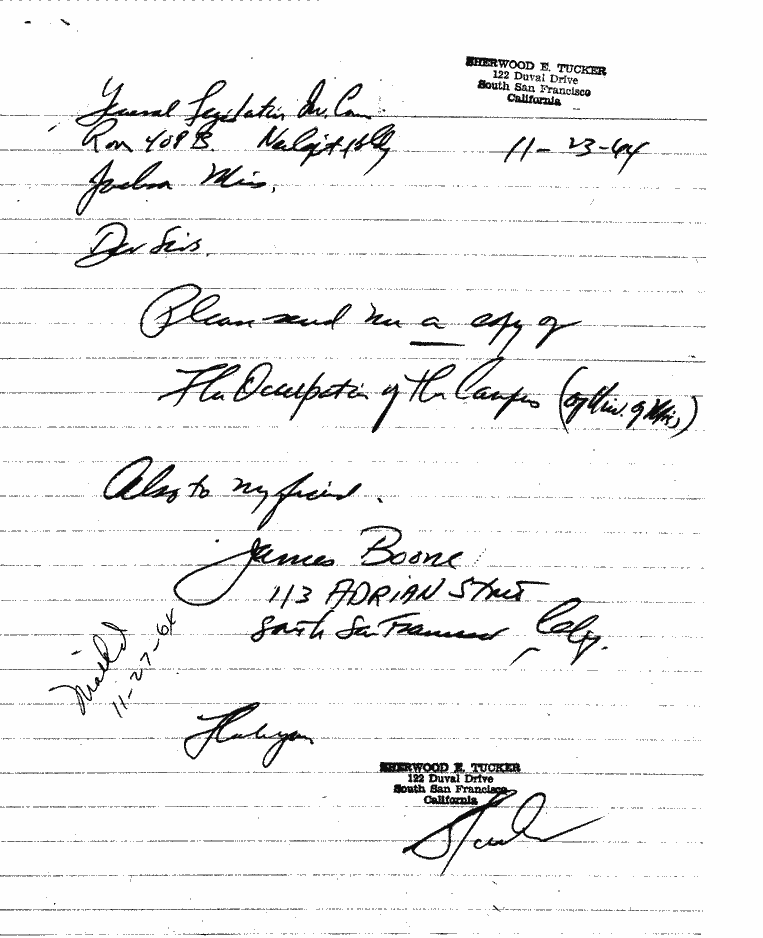 SHERWOOD E. TUCKER
122 Duval Drive
South San Francisco
California
General Legislative Inv. Com
Rom 409 B.
11-23-64
Jackson Miss.
Dear Sirs.
Please send me a copy of
The Occupation of the Campus (of Univ. of Miss.)
Also to my friend.
James Boone
113 ADRIAN Street
South San Francisco, Calif.
Mailed
11-27-64
Thank you
SHERWOOD E. TUCKER
122 Duval Drive
South San Francisco
California